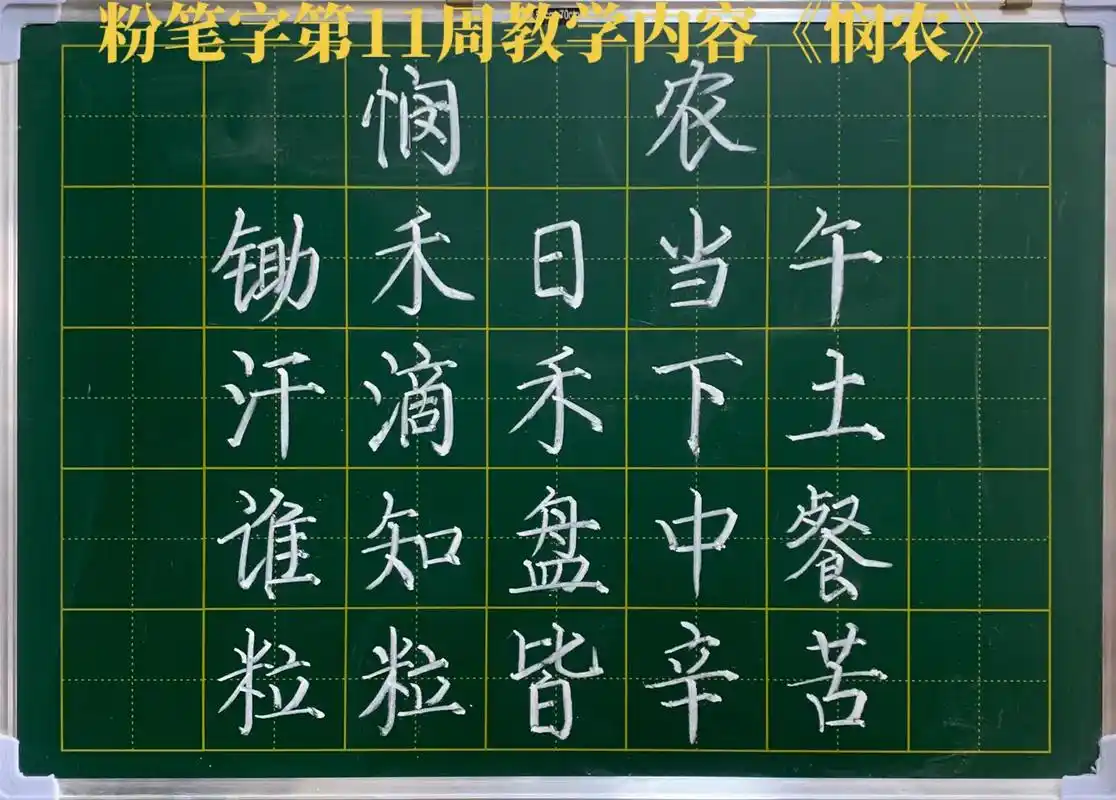 粉笔字第11周教学内容《悯农》
悯农
锄禾日当午
汗滴禾下土
谁知盘中餐
粒粒皆辛苦